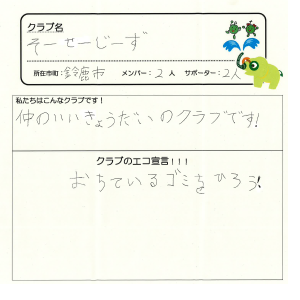 クラブ名
そーせーじーず
所在市町：鈴鹿市 メンバー：2 人 サポーター：2人
私たちはこんなクラブです！
仲のいいきょうだいのクラブです!
クラブのエコ宣言！！！
おちているゴミをひろう!